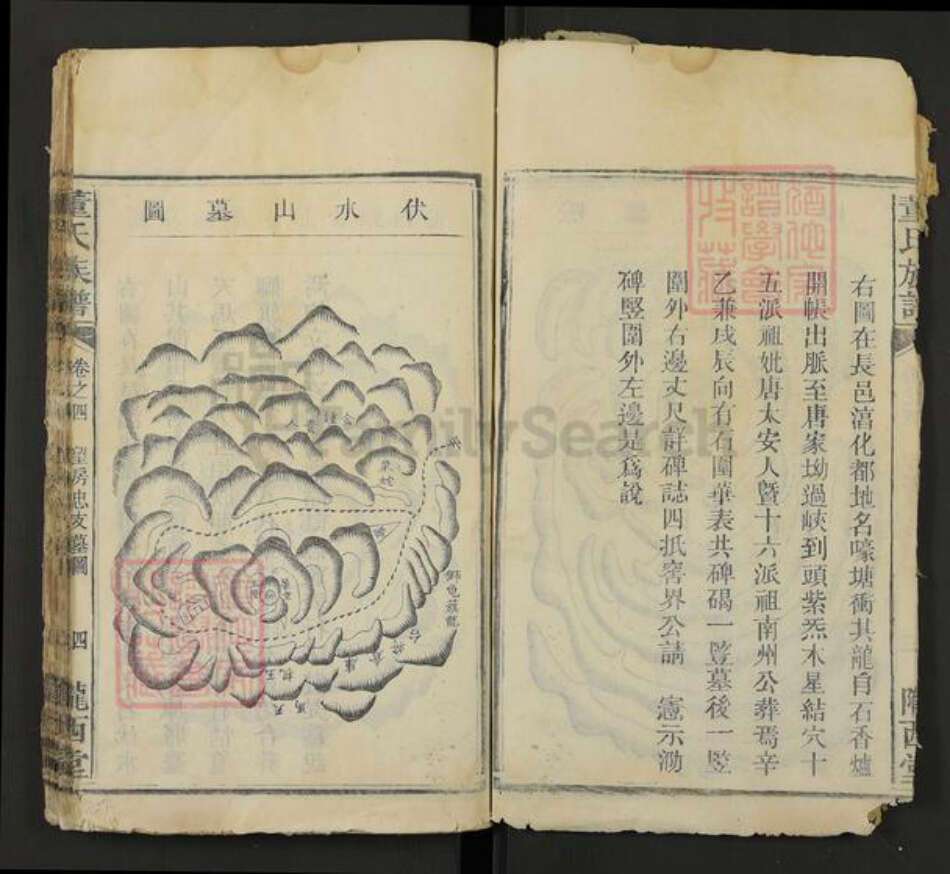 董氏族譜
隴西堂
右圖在長邑淸化都地名嚎塘衝其龍自石香爐
開帳出脈至唐家坳過峽到頭紫炁木星結穴十
五派祖妣唐太安人暨十六派祖南州公葬焉辛
乙兼戌辰向有石圍華表共碑碣一豎墓後一豎
圍外右邊丈尺詳碑誌四抵窖界公請 憲示泐
碑豎圍外左邊是爲說
伏水山墓圖
董氏族譜
卷之四
房忠支墓圖
四
隴西堂
FamilySearch